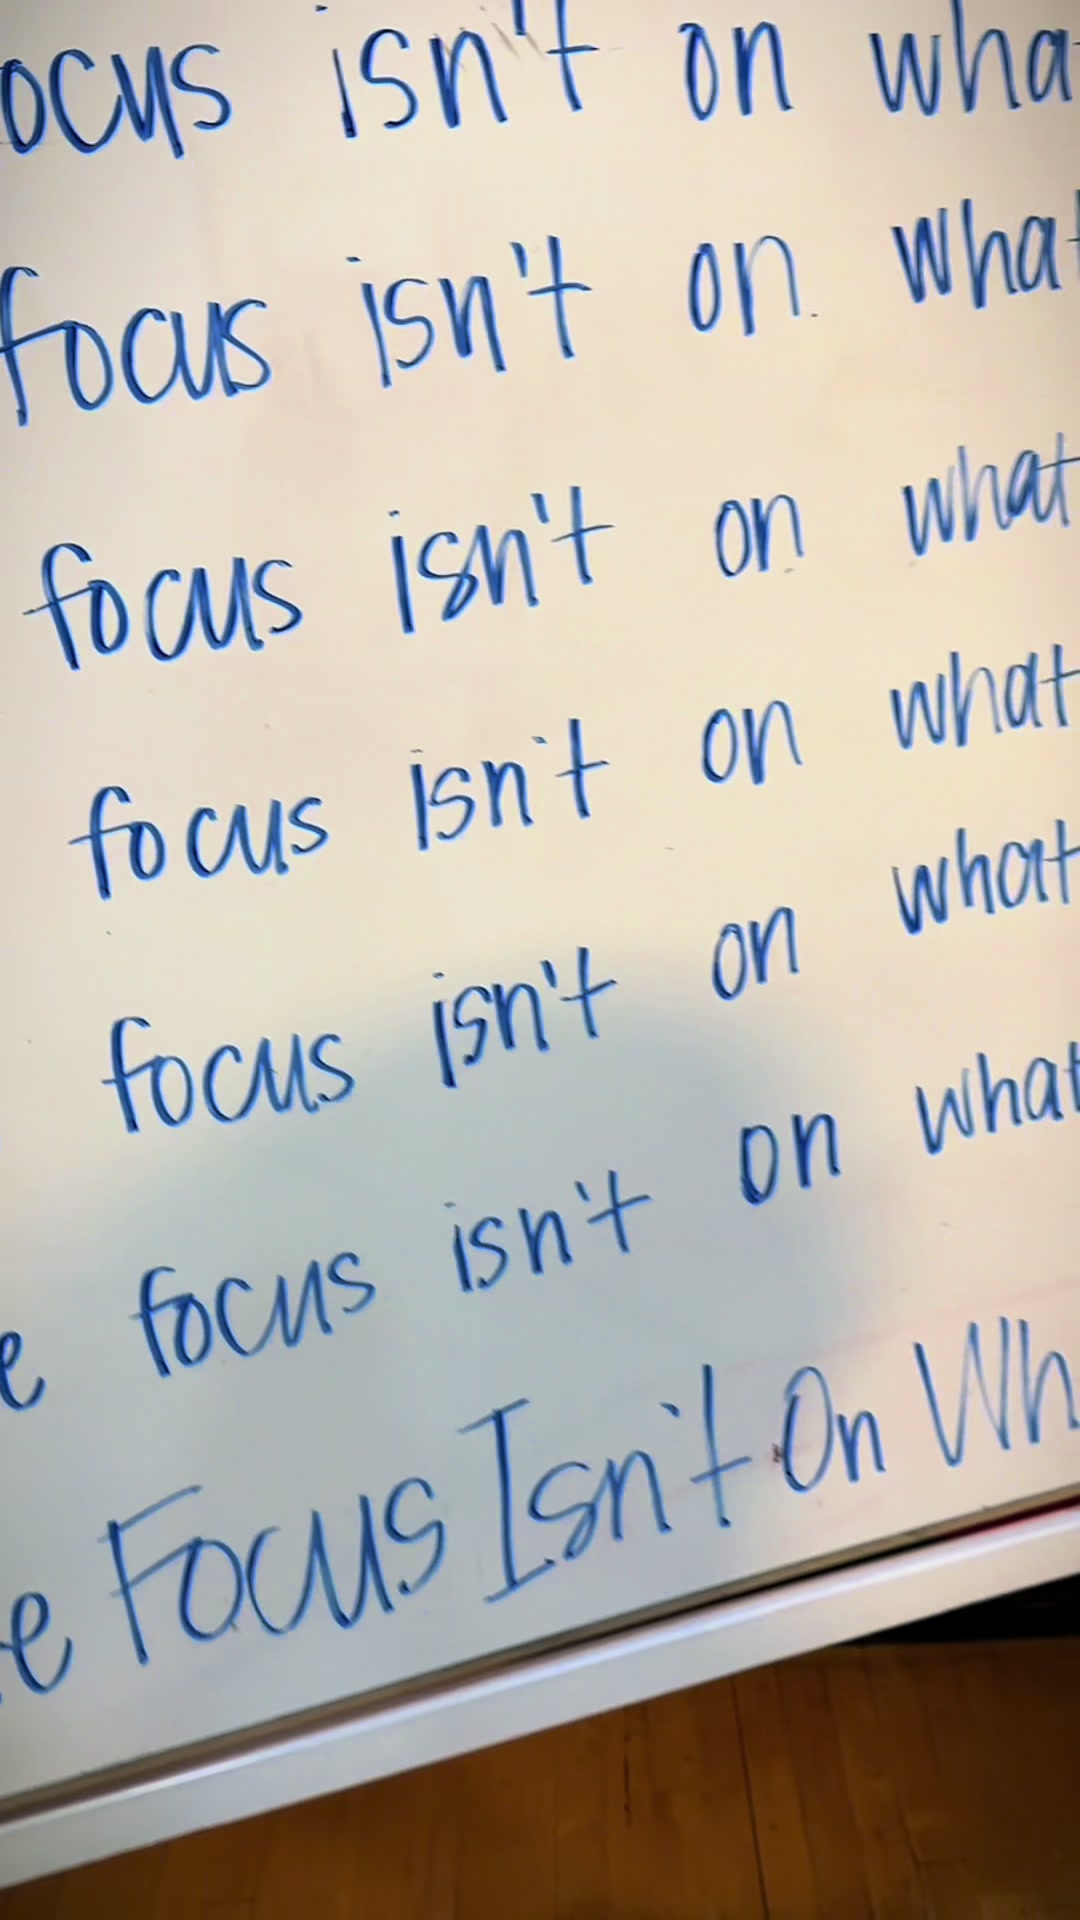 ocus isn't on wha
focus isn't on what
focus isn't on what
focus isn't on what
focus isn't on what
e focus isn't on what
e Focus Isn't On Wh